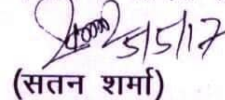 5/5/17
(सतन शर्मा)